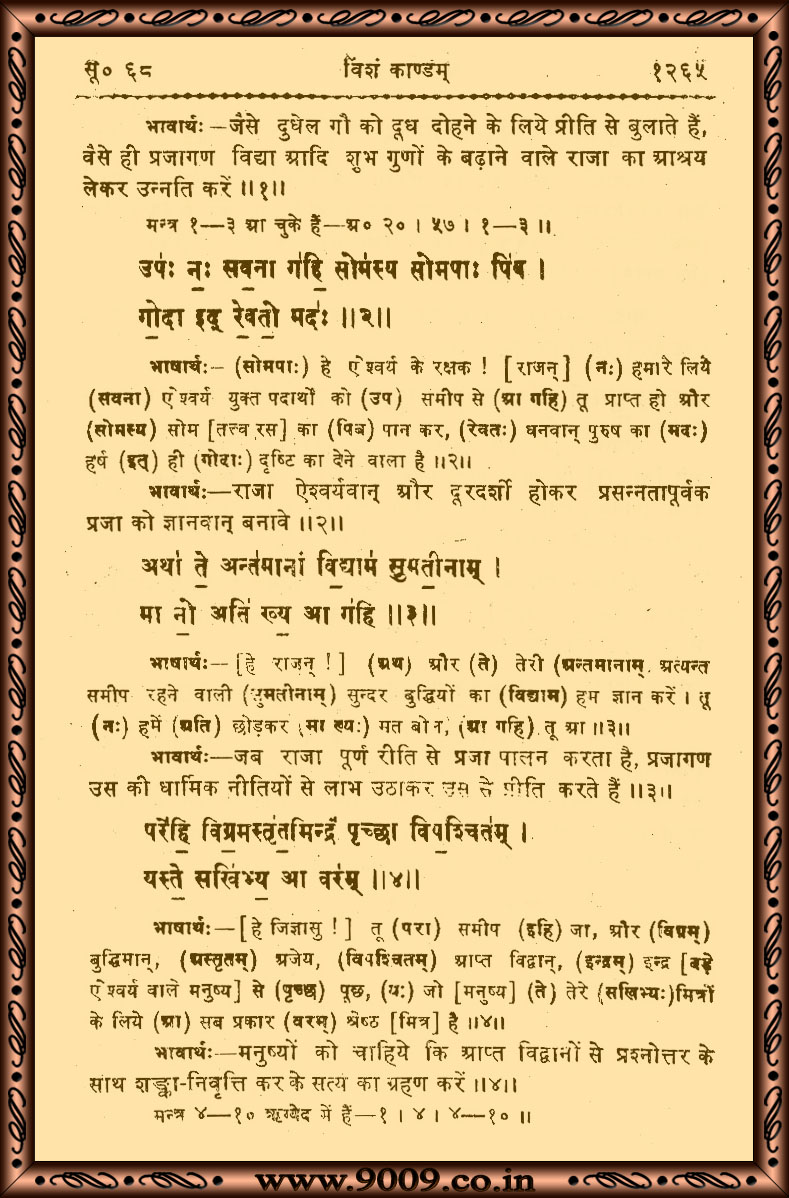 सू० ६८ विंशं काण्डम् १२६५
भावार्थः—जैसे दुधेल गौ को दूध दोहने के लिये प्रीति से बुलाते हैं,
वैसे ही प्रजागण विद्या आदि शुभ गुणों के बढ़ाने वाले राजा का आश्रय
लेकर उन्नति करें ॥१॥
मन्त्र १—३ आ चुके हैं—अ० २० । ५७ । १—३ ॥
उप॑ः न॒ः सव॒ना ग॑हि॒ सोम॑स्य सोमपाः पि॑ब ।
गो॒दा इद् रे॒वतो॒ मद॑ः ॥२॥
भाषार्थः—(सोमपाः) हे ऐश्वर्य के रक्षक ! [राजन्] (नः) हमारे लिये
(सवना) ऐश्वर्य युक्त पदार्थों को (उप) समीप से (आ गहि) तू प्राप्त हो और
(सोमस्य) सोम [तत्त्व रस] का (पिब) पान कर, (रेवतः) धनवान् पुरुष का (मदः)
हर्ष (इत्) ही (गोदाः) दृष्टि का देने वाला है ॥२॥
भावार्थः—राजा ऐश्वर्यवान् और दूरदर्शी होकर प्रसन्नतापूर्वक
प्रजा को ज्ञानवान् बनावे ॥२॥
अथा॑ ते॒ अन्त॑मानां वि॒द्याम॑ सुम॒ती॒नाम् ।
मा नो॒ अति॑ ख्य॒ आ ग॑हि ॥३॥
भाषार्थः—[हे राजन् !] (अथ) और (ते) तेरी (अन्तमानाम् अत्यन्त
समीप रहने वाली (सुमतीनाम्) सुन्दर बुद्धियों का (विद्याम) हम ज्ञान करें । तू
(नः) हमें (अति) छोड़कर (मा ख्यः) मत बोल, (आ गहि) तू आ ॥३॥
भावार्थः—जब राजा पूर्ण रीति से प्रजा पालन करता है, प्रजागण
उस की धार्मिक नीतियों से लाभ उठाकर उस से प्रीति करते हैं ॥३॥
परे॑हि॒ विग्र॒मस्तृ॑त॒मिन्द्रं॑ पृच्छा विप॒श्चित॑म् ।
यस्ते॒ सखि॑भ्य॒ आ वर॑म् ॥४॥
भाषार्थः—[हे जिज्ञासु !] तू (परा) समीप (इहि) जा, और (विग्रम्)
बुद्धिमान्, (अस्तृतम्) अजेय, (विपश्चितम्) आप्त विद्वान्, (इन्द्रम्) इन्द्र [बड़े
ऐश्वर्य वाले मनुष्य] से (पृच्छ) पूछ, (यः) जो [मनुष्य] (ते) तेरे (सखिभ्यः)मित्रों
के लिये (आ) सब प्रकार (वरम्) श्रेष्ठ [मित्र] है ॥४॥
भावार्थः—मनुष्यों को चाहिये कि आप्त विद्वानों से प्रश्नोत्तर के
साथ शङ्का-निवृत्ति कर के सत्य का ग्रहण करें ॥४॥
मन्त्र ४—१० ऋग्वेद में हैं—१ । ४ । ४—१० ॥
www.9009.co.in